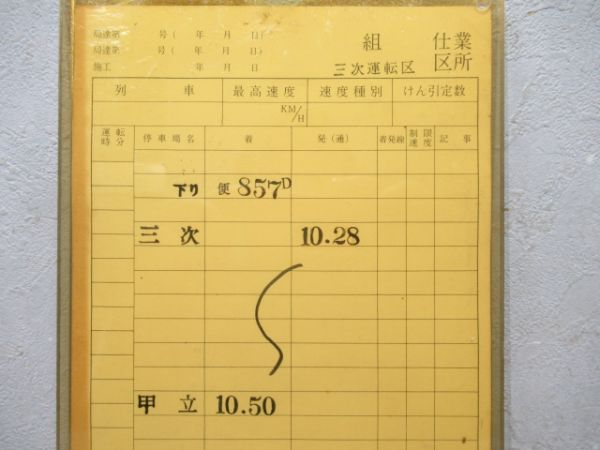 局達第 号( 年 月 日) 組 仕業
局達第 号( 年 月 日) 三次運転区 区所
施工 年 月 日
列 車 最高速度 速度種別 けん引定数
KM/H
運転時分 停車場名 着 発(通) 着発線 制限速度 記事
下り 便 857D
三次 10.28
甲立 10.50